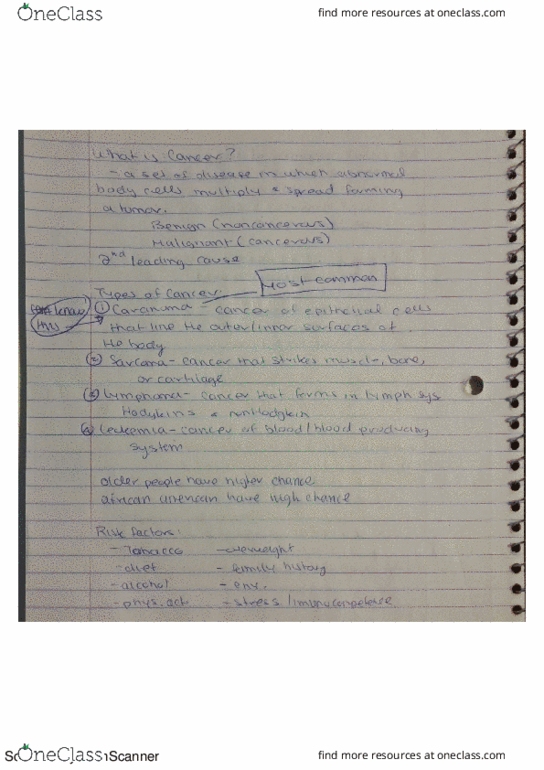 OneClass
find more resources at oneclass.com
What is Cancer?
- a set of disease in which abnormal
body cells multiply & spread forming
a tumor.
Benign (noncancerous)
Malignant (cancerous)
2nd leading cause
Most common
Types of Cancer
know
this
① Carcinoma - cancer of epithelial cells
that line the outer/inner surfaces of
the body
② Sarcoma - cancer that strikes muscle, bone,
or cartilage
③ Lymphoma - cancer that forms in lymph sys
Hodgkins & nonHodgkin
④ Leukemia - cancer of blood/blood producing
system
older people have higher chance
african american have high chance
Risk factors:
- Tobacco - overweight
- diet - family history
- alcohol - env.
- phys. act - stress /
OneClass
Scanner
find more resources at oneclass.com